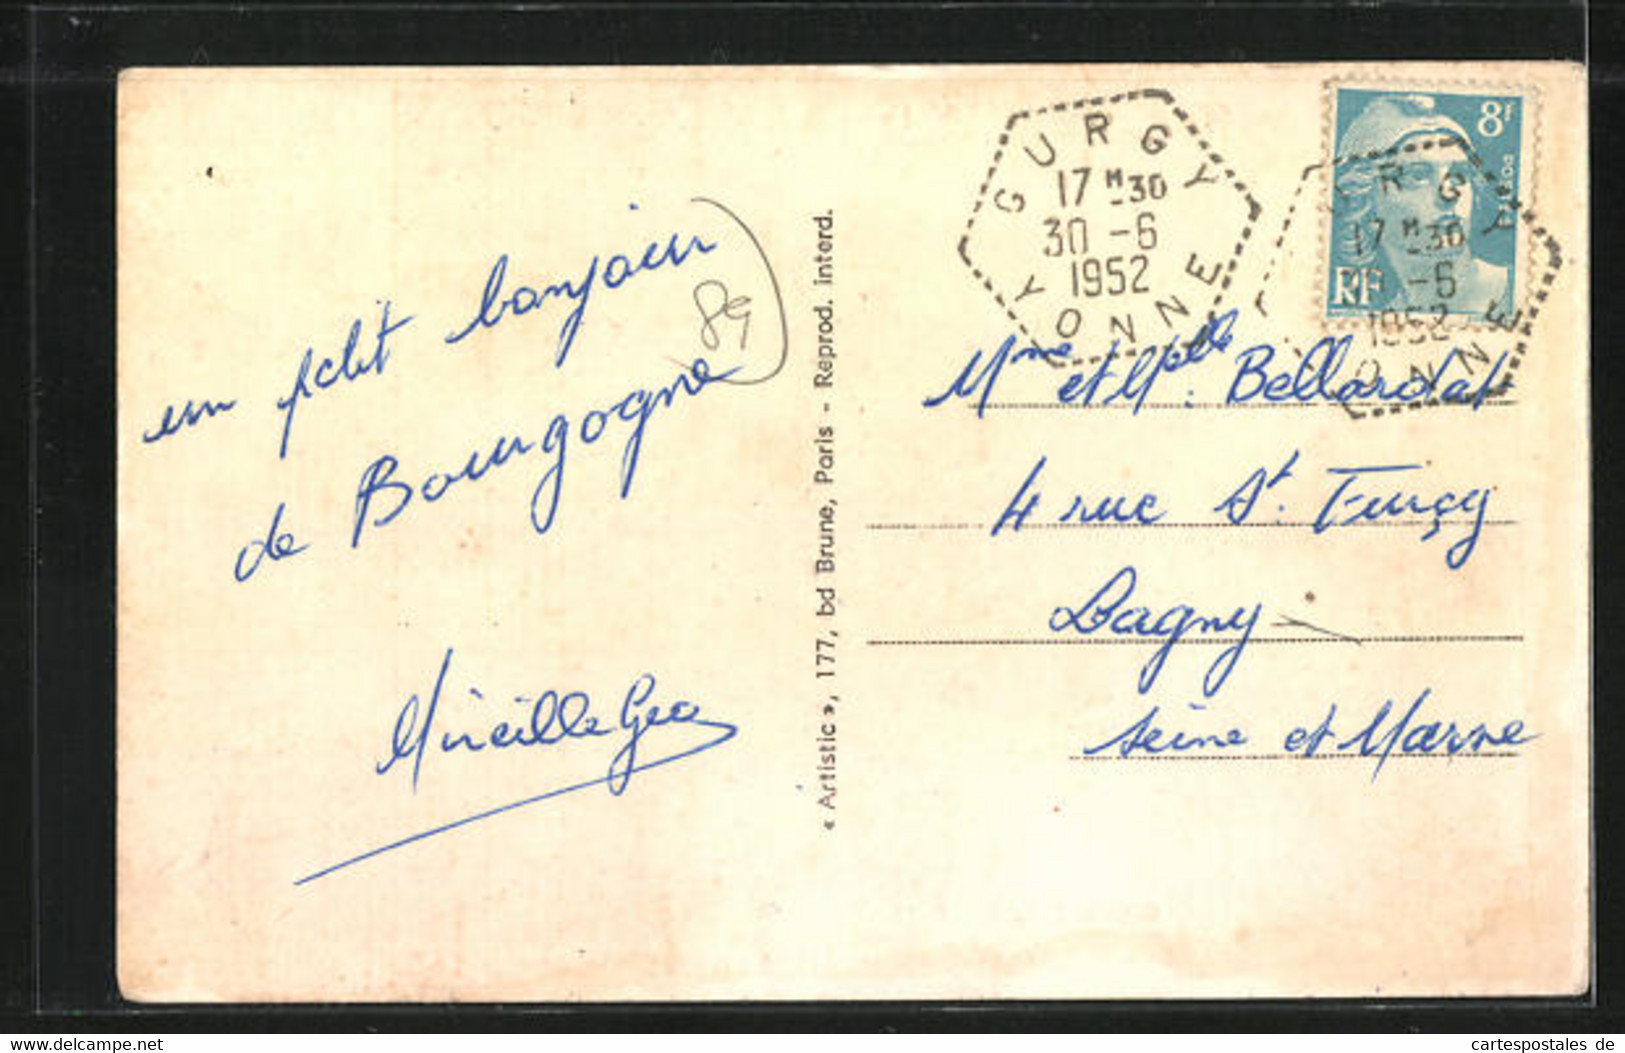 un petit bonjour
de Bourgogne
Mireille Geo
89
« Artistic », 177, bd Brune, Paris - Reprod. interd.
GURGY
17 H -30
30 -6
1952
YONNE
8F
RF
RGY
17 H -30
-6
1952
ONNE
Mme et Melle Bellardat
4 rue St. Furçy
Lagny
Seine et Marne
www.cartespostales.de
cartespostales de